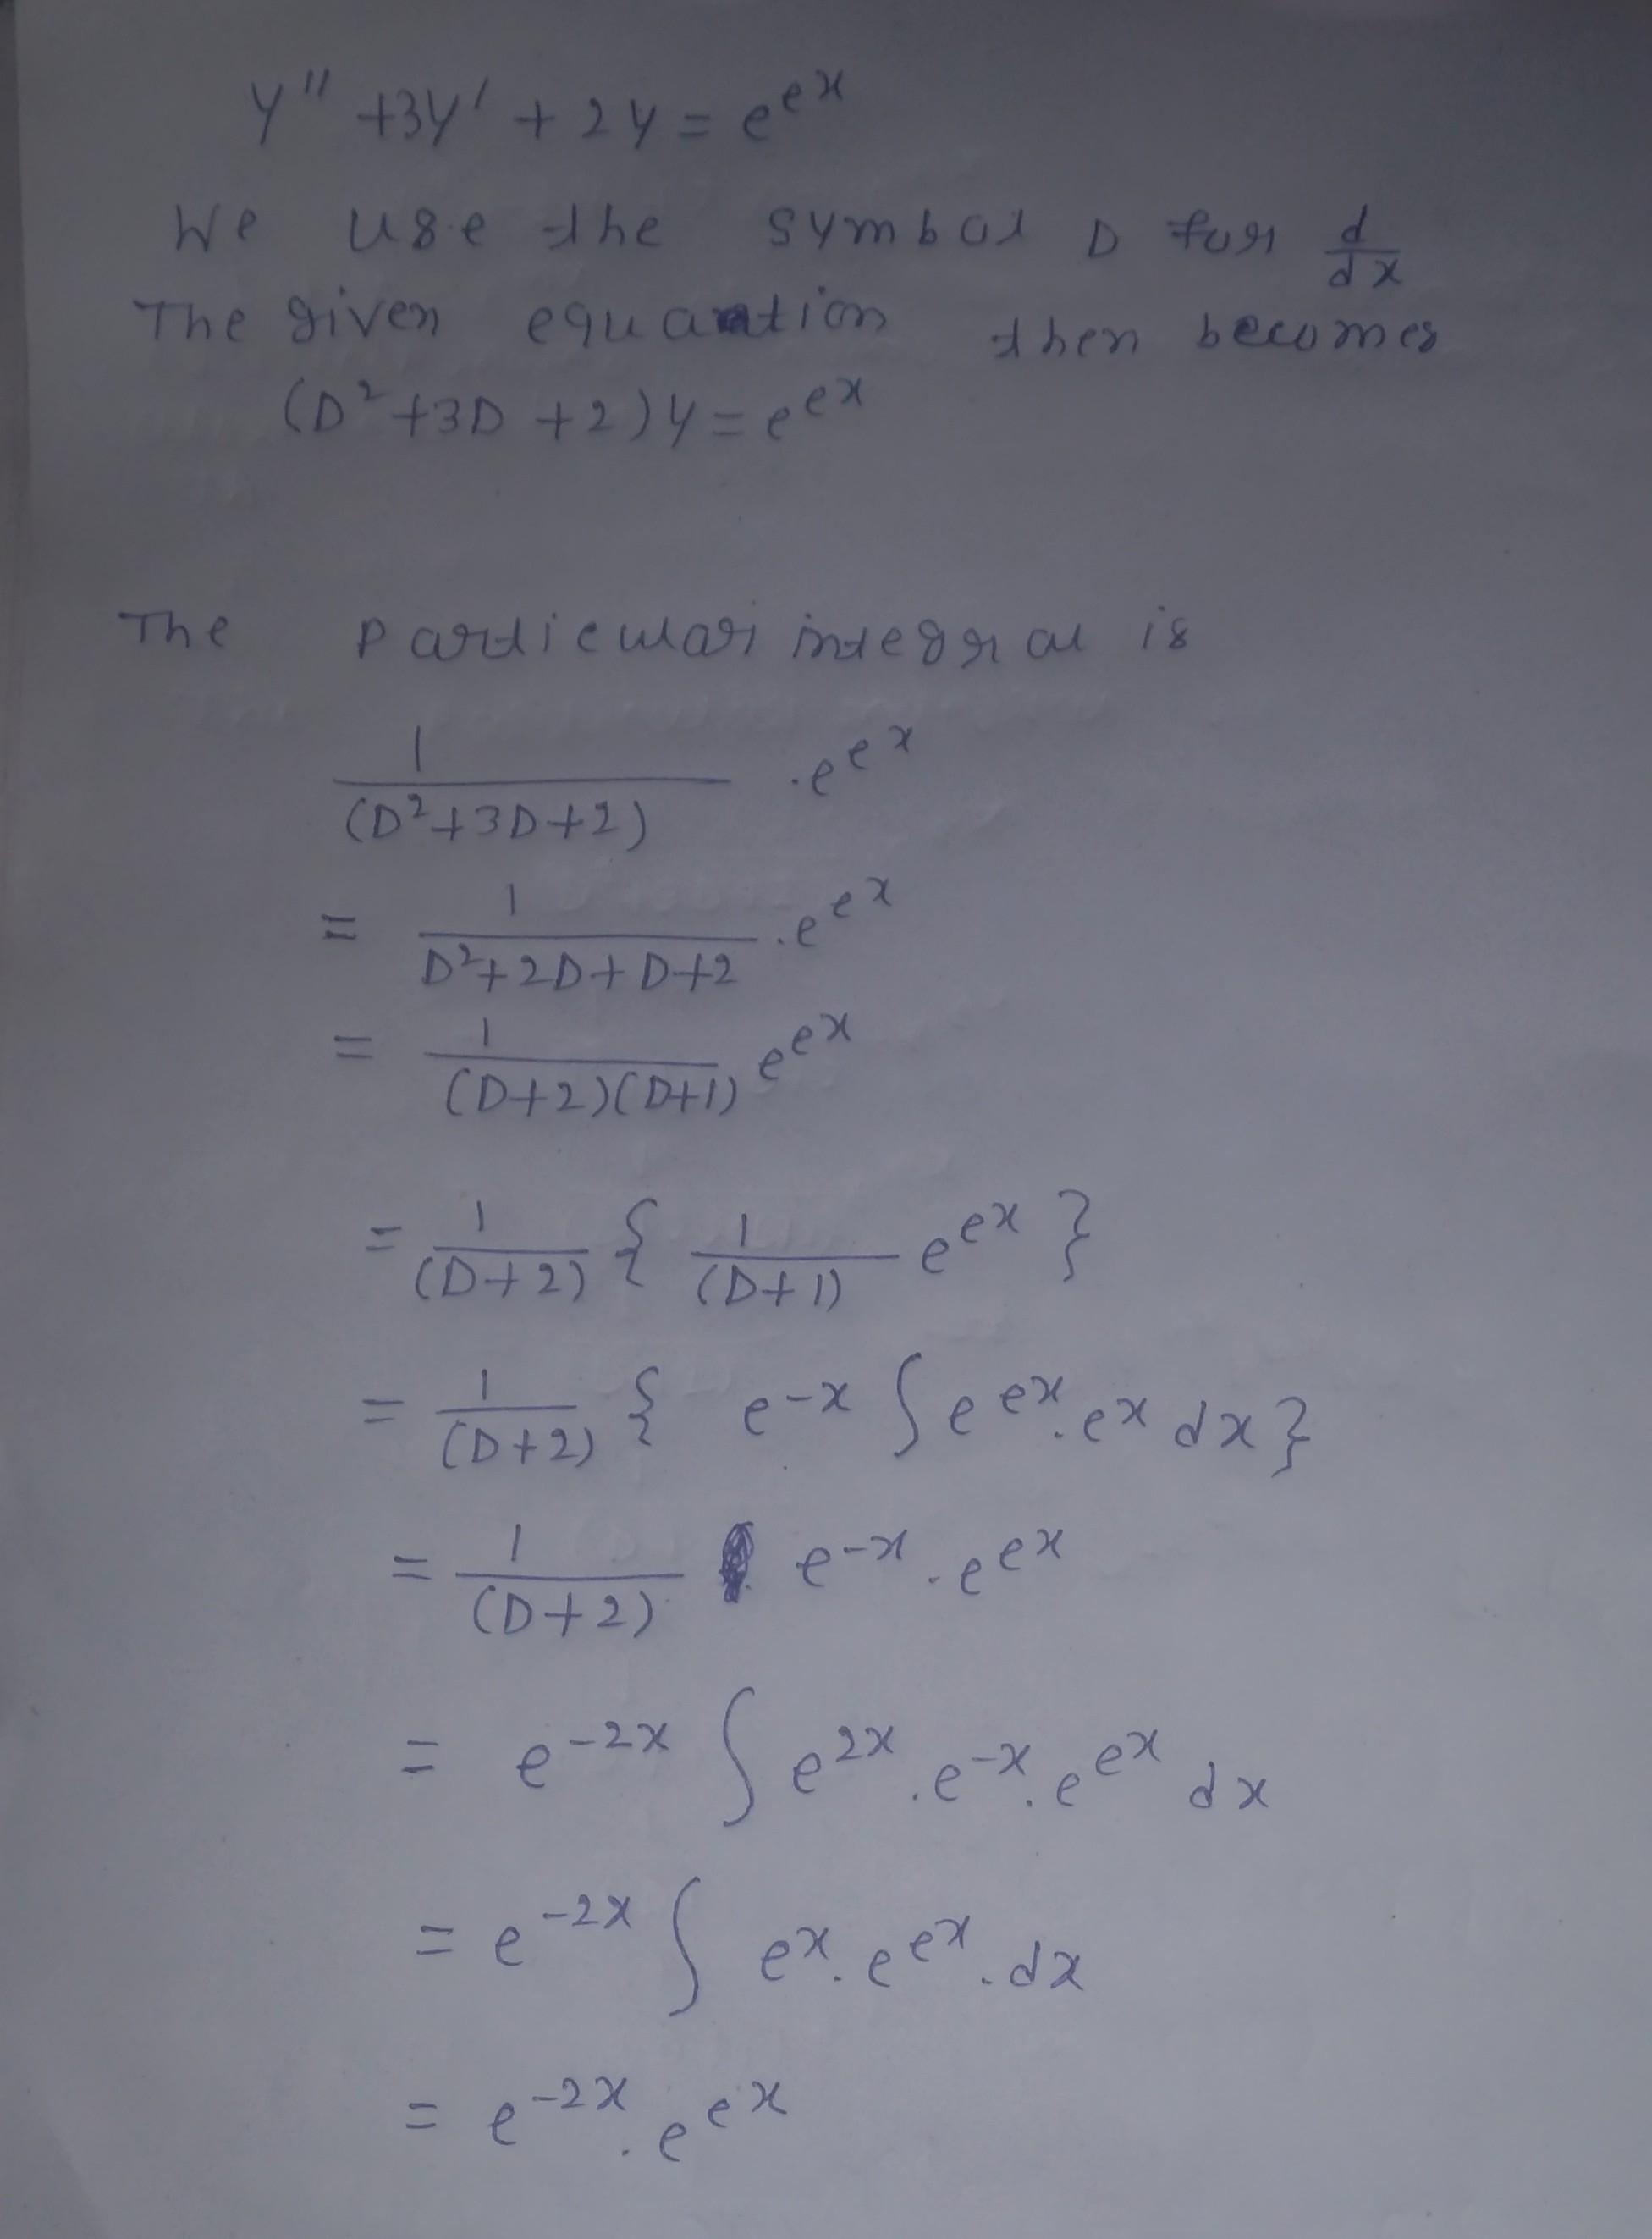 y'' + 3y' + 2y = e^{e^x}
We use the symbol D for d/dx
The given equation then becomes
(D² + 3D + 2)y = e^{e^x}
The particular integral is
1/(D² + 3D + 2) . e^{e^x}
= 1/(D² + 2D + D + 2) . e^{e^x}
= 1/((D + 2)(D + 1)) e^{e^x}
= 1/(D + 2) { 1/(D + 1) e^{e^x} }
= 1/(D + 2) { e^{-x} ∫ e^{e^x} . e^x dx }
= 1/(D + 2) e^{-x} . e^{e^x}
= e^{-2x} ∫ e^{2x} . e^{-x} . e^{e^x} dx
= e^{-2x} ∫ e^x . e^{e^x} . dx
= e^{-2x} . e^{e^x}